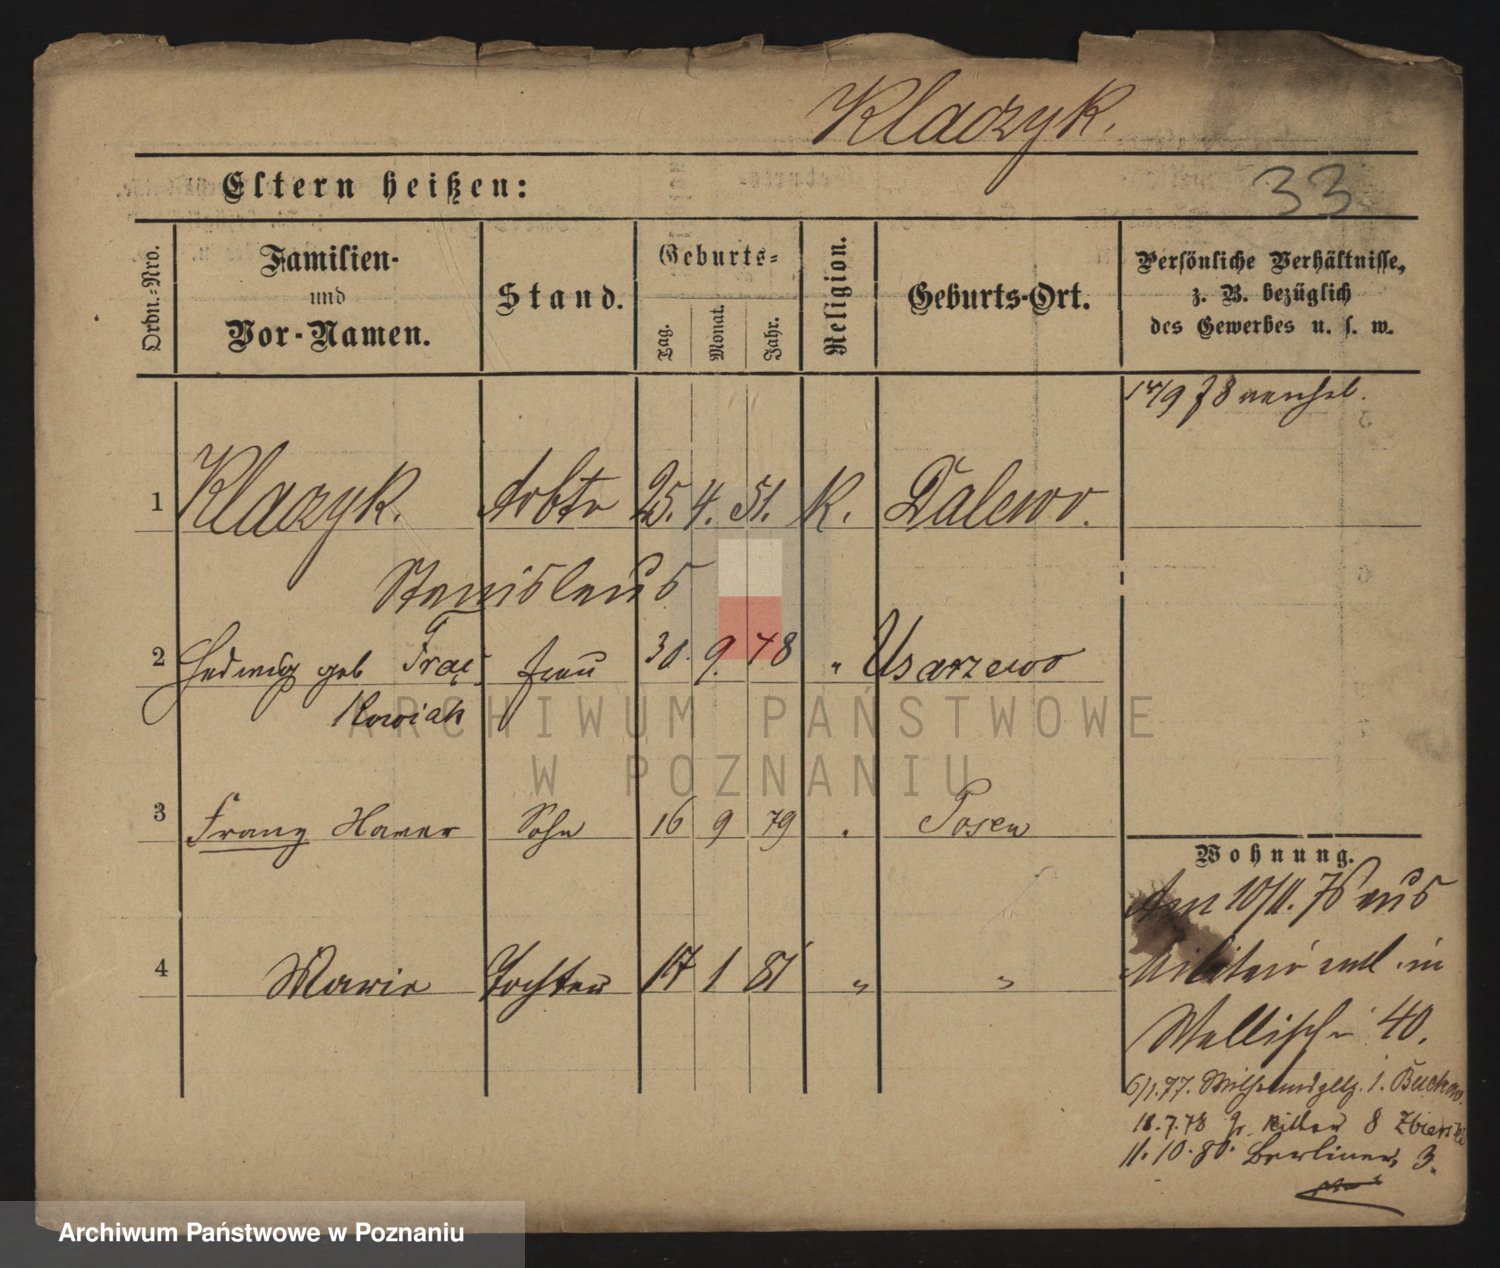 Klaczyk.
33
Eltern heißen:
Ordn.-Nro.
Familien-
und
Vor-Namen.
Stand.
Geburts-
Tag.
Monat.
Jahr.
Religion.
Geburts-Ort.
Persönliche Verhältnisse,
z. B. bezüglich
des Gewerbes u. s. w.
1 Klaczyk. Arbtr 25. 4. 51. K. Dalewo.
Stanislaus
2 Hedwig geb Frąc- Frau 30. 9. 78 " Usarzewo
kowiak
3 Franz Xaver Sohn 16 9 79 " Posen
4 Marie Tochter 17 1 81 " "
Wohnung.
Am 10/11. 76 aus
Militair entl. in
Wallischei 40.
6/1.77. b. Buckow.
18.7.78 Gr. Ritter 8
11.10.80. Berliner 3.
ARCHIWUM PAŃSTWOWE
W POZNANIU
Archiwum Państwowe w Poznaniu